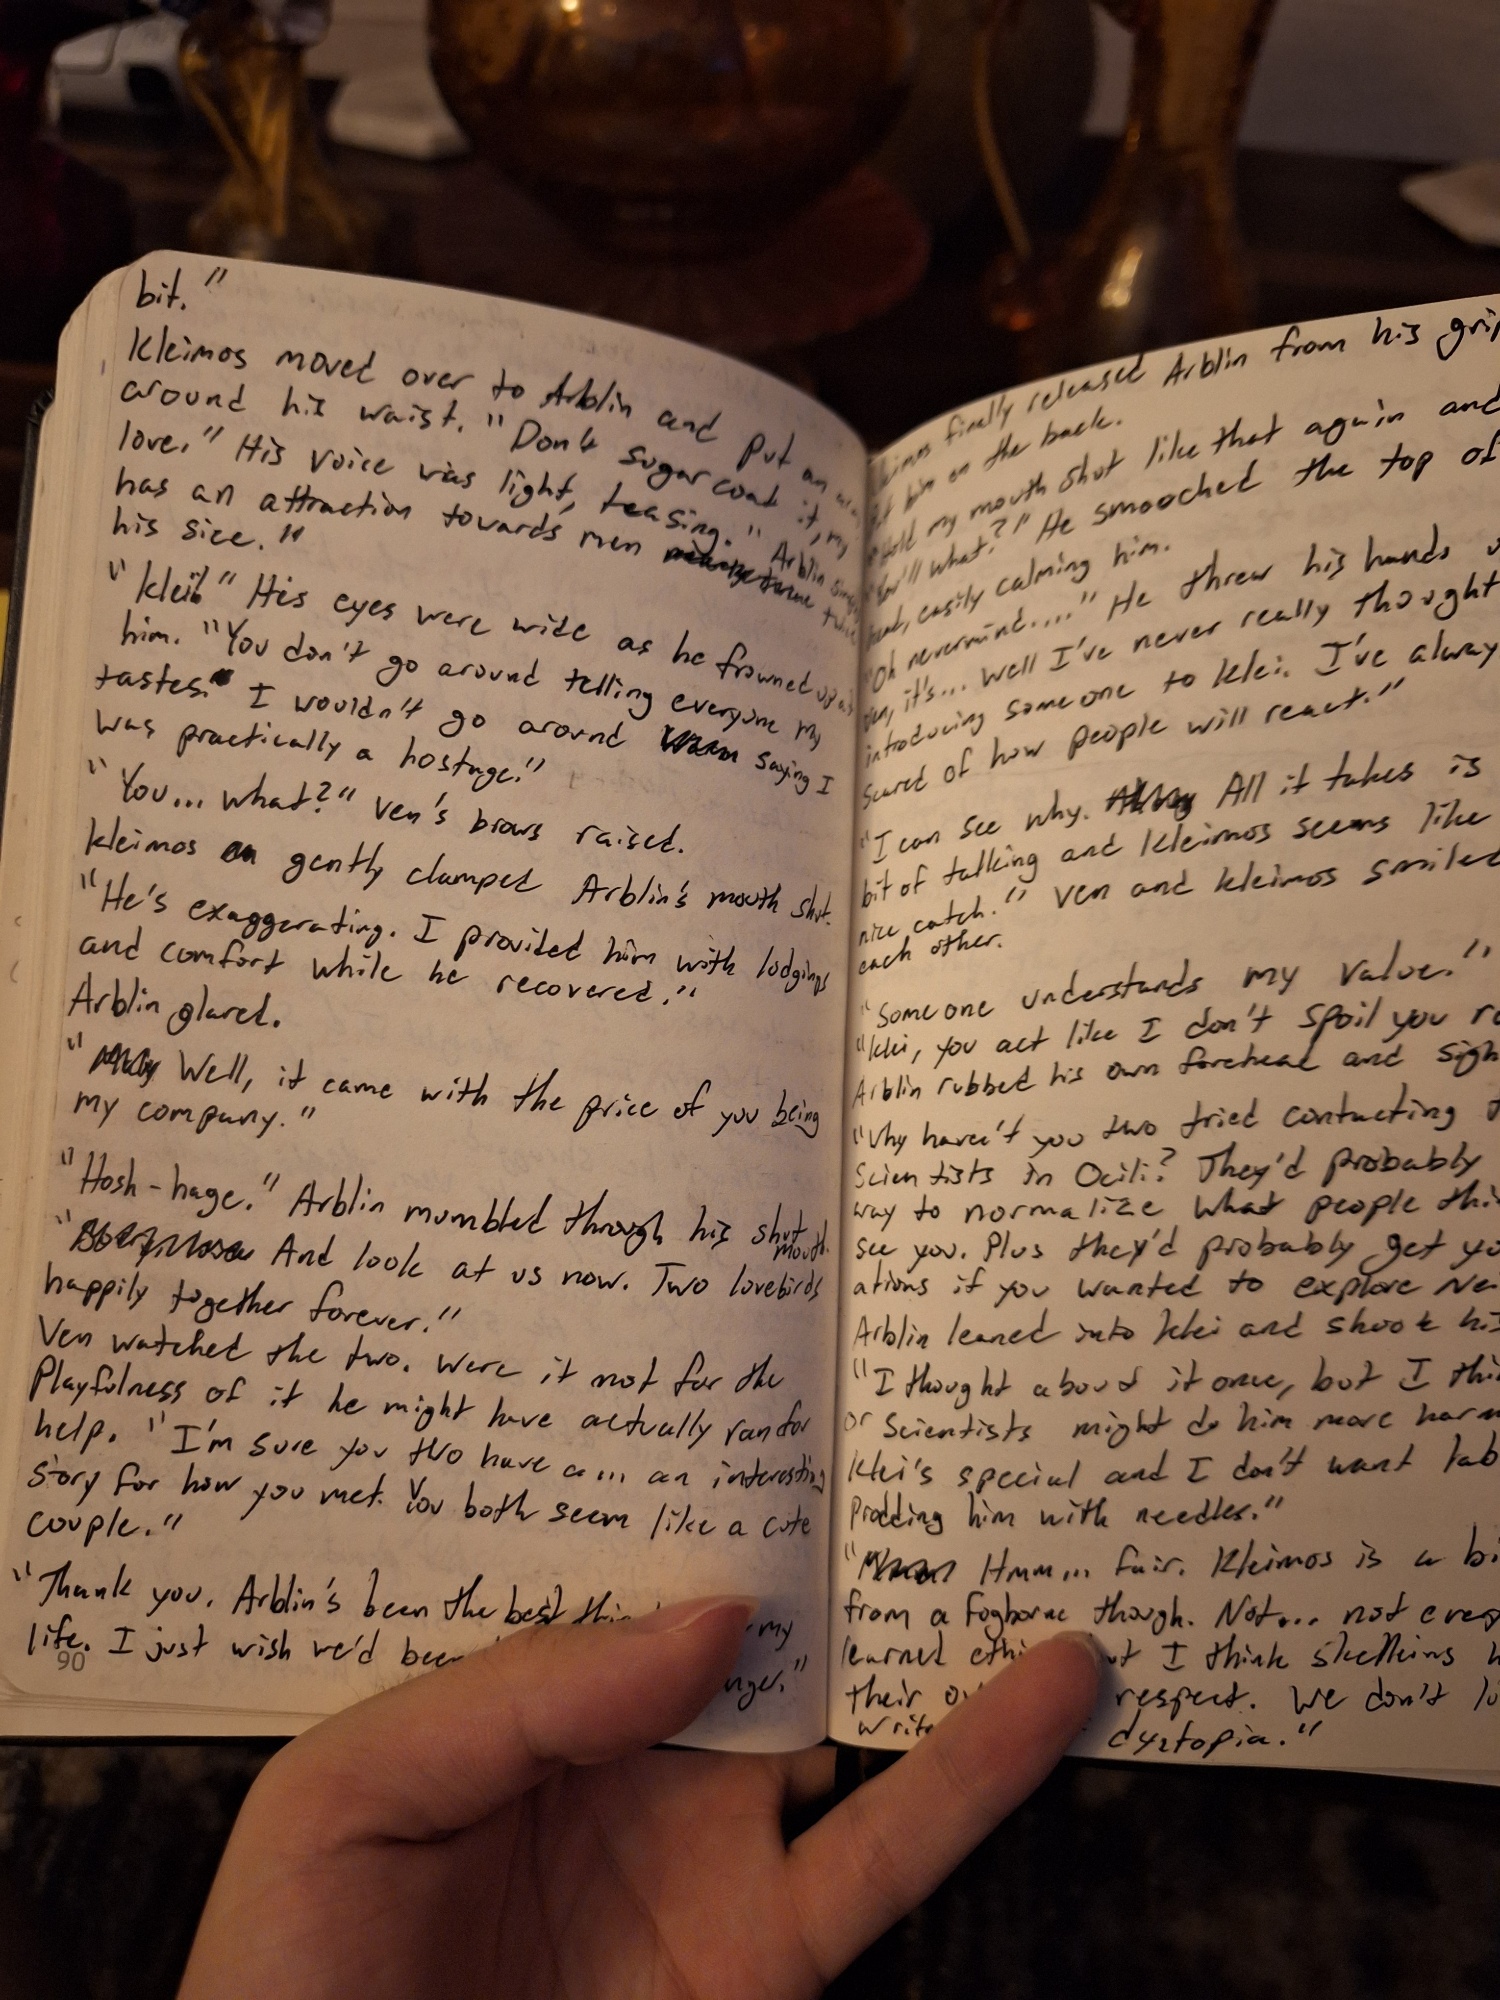 bit."
Kleimos moved over to Arblin and put an arm
around his waist. "Don't sugar coat it, my
love." His voice was light, teasing. "Arblin simply
has an attraction towards men twice
his size."
"Klei!" His eyes were wide as he frowned up at
him. "You don't go around telling everyone my
tastes. I wouldn't go around saying I
was practically a hostage."
"You... what?" Ven's brows raised.
Kleimos gently clamped Arblin's mouth shut.
"He's exaggerating. I provided him with lodgings
and comfort while he recovered."
Arblin glared.
"Well, it came with the price of you being
my company."
"Hosh-hage." Arblin mumbled through his shut
mouth.
"And look at us now. Two lovebirds
happily together forever."
Ven watched the two. Were it not for the
Playfulness of it he might have actually ran for
help. "I'm sure you two have a... an interesting
story for how you met. You both seem like a cute
couple."
"Thank you. Arblin's been the best my
life. I just wish we'd been
90
Kleimos finally released Arblin from his grip
him on the back.
hold my mouth shut like that again and
"You'll what?" He smooched the top of
head, easily calming him.
"Oh nevermind...." He threw his hands
it's... well I've never really thought
introducing someone to Klei. I've alway
scared of how people will react."
"I can see why. All it takes is
bit of talking and Kleimos seems like
nice catch." Ven and Kleimos smiled
each other.
"Someone understands my value."
"Klei, you act like I don't spoil you
Arblin rubbed his own forehead and sigh
"Why haven't you two tried contacting
Scientists in Ocili? They'd probably
way to normalize what people thi
see you. Plus they'd probably get yo
ations if you wanted to explore Ne
Arblin leaned into Klei and shook his
"I thought about it once, but I thi
or scientists might do him more harm
Klei's special and I don't want lab
Prodding him with needles."
"Hmm... fair. Kleimos is a bi
from a fogborne though. Not... not every
learned I think skelkins
their respect. We don't
dystopia."